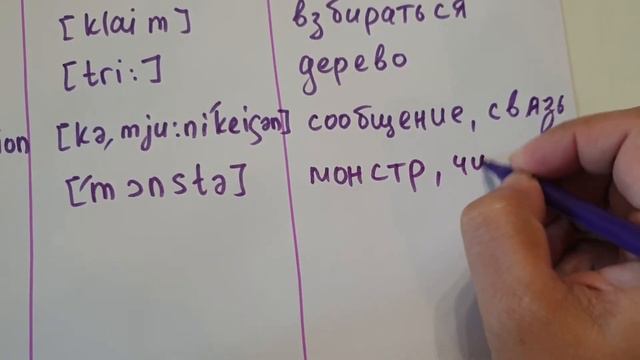 [klaim] взбираться
[tri:] дерево
ion [kə,mju:ni'keiʃən] сообщение, связь
['mɔnstə] монстр, чи